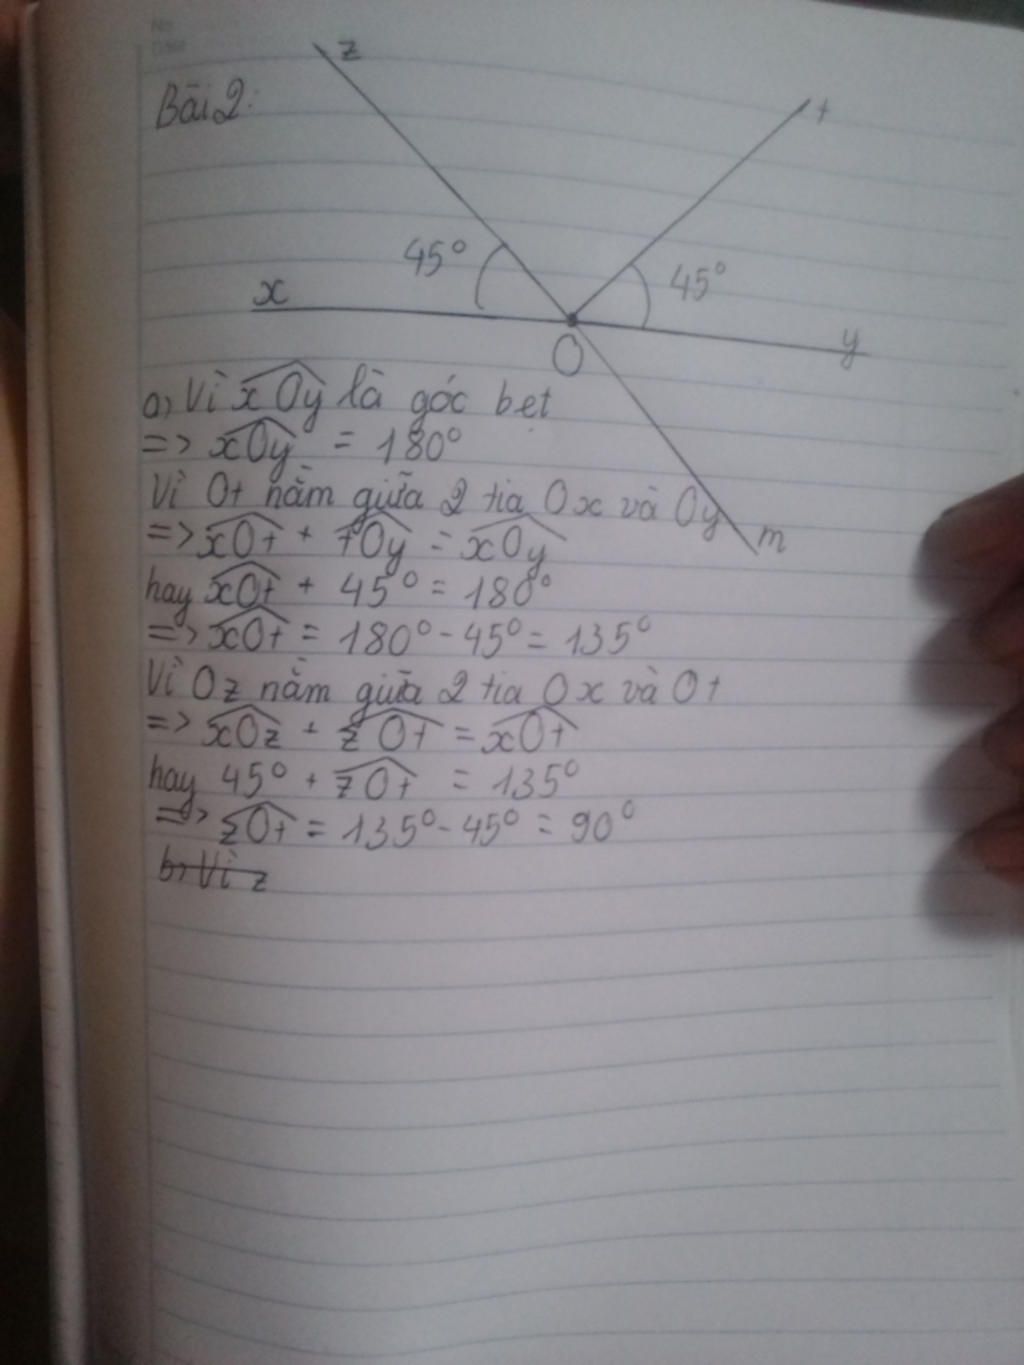 z
Bài 2:
t
45°
45°
x
y
O
a, Vì xOy là góc bẹt
=> xOy = 180°
Vì Ot nằm giữa 2 tia Ox và Oy
m
=> xOt + tOy = xOy
hay xOt + 45° = 180°
=> xOt = 180° - 45° = 135°
Vì Oz nằm giữa 2 tia Ox và Ot
=> xOz + zOt = xOt
hay 45° + zOt = 135°
=> zOt = 135° - 45° = 90°
b, Vì z